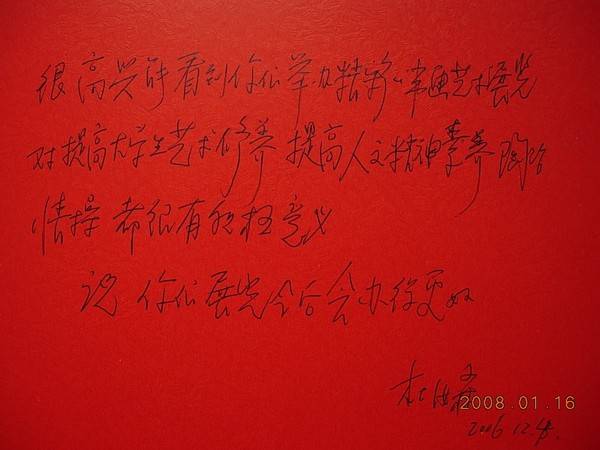 很高兴能看到你们举办精彩书画艺术展览
对提高大学生艺术修养 提高人文精神素养 陶冶
情操 都很有积极意义
祝 你们展览今后会办得更好
2008.01.16
2006.12.